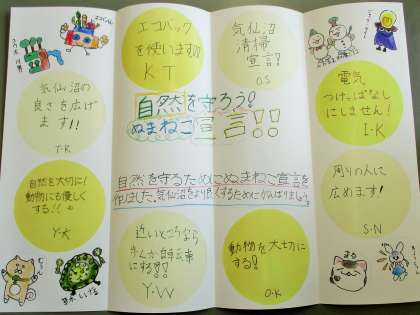 エコバック
を使います!!
KT
気仙沼
清掃
宣言!
O.S
気仙沼の
良さを広げ
ます!!
T-K
電気
つけっぱなし
にしません!
I-K
自然を守ろう!
ぬまねこ宣言!!
自然を守るためにぬまねこ宣言を
作りました。気仙沼をより良くするためにがんばりましょう。
自然を大切に!
動物にも優しく
する!!
Y-K
周りの人に
広めます!
S-N
近いところなら
歩くか自転車
にする!!
Y-W
動物を大切に
する!
O-K